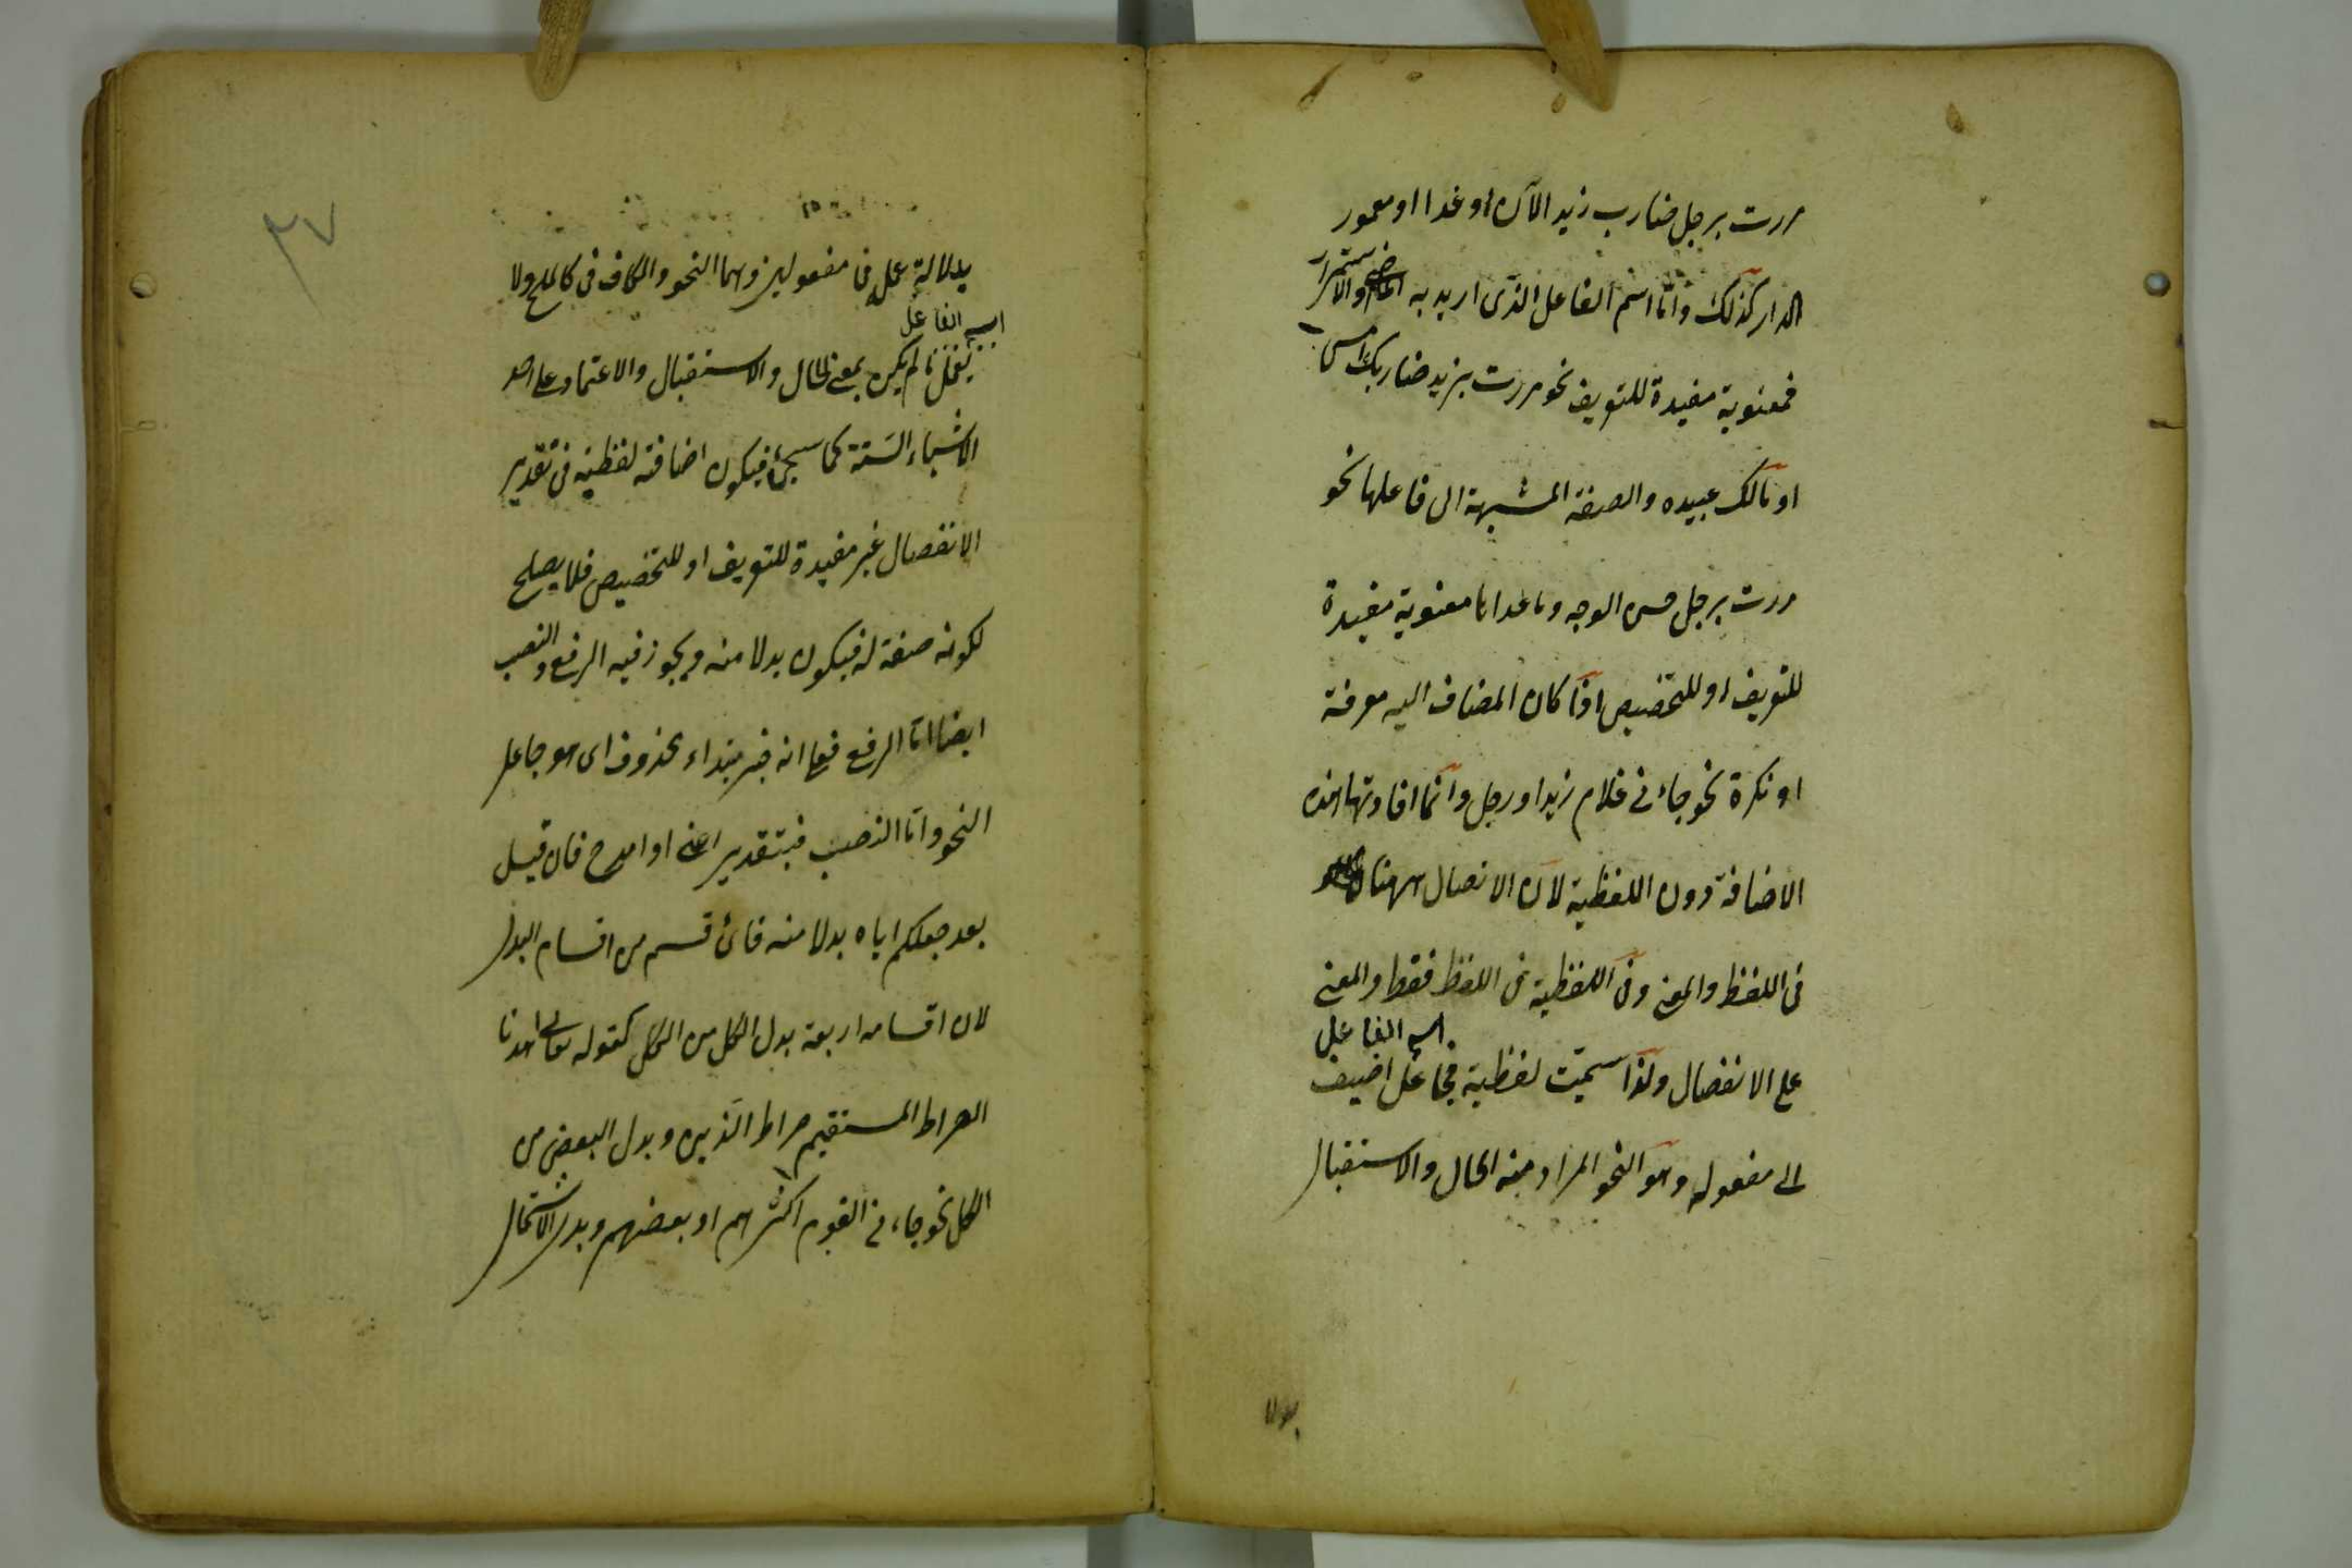 مررت برجل ضارب زيد الآن او غدا او معمور
الدار كذلك واما اسم الفاعل الذى اريد به الماضى او الاستمرار
فمعنوية مفيدة للتعريف نحو مررت بزيد ضاربك امس
او مالك عبيده والصفة المشبهة الى فاعلها نحو
مررت برجل حسن الوجه وما عداها معنوية مفيدة
للتعريف او للتخصيص اذا كان المضاف اليه معرفة
او نكرة نحو جاءنى غلام زيد او رجل وانما افادتها هذه
الاضافة دون اللفظية لان الاتصال ههنا
فى اللفظ والمعنى وفى اللفظية فى اللفظ فقط والمعنى
اسم الفاعل
على الانفصال ولذا سميت لفظية فجاعل اضيف
الى مفعوله وهو النحو المراد منه الحال والاستقبال
بدلا
٣٧
بدلالة عمله فى مفعولين وهما النحو والكاف فى كالملح ولا
اسم الفاعل
يعمل ما لم يكن بمعنى الحال والاستقبال والاعتماد على احد
الاشياء الستة كما سيجئ فيكون اضافته لفظية فى تقدير
الانفصال غير مفيدة للتعريف او للتخصيص فلا يصلح
لكونه صفة له فيكون بدلا منه ويجوز فيه الرفع والنصب
ايضا اما الرفع فعلى انه خبر مبتداء محذوف اى هو جاعل
النحو واما النصب فبتقدير اعنى او امدح فان قيل
بعد جعلكم اياه بدلا منه فاى قسم من اقسام البدل
لان اقسامه اربعة بدل الكل من الكل كقوله تعالى اهدنا
الصراط المستقيم صراط الذين وبدل البعض من
الكل نحو جاءنى القوم اكثرهم او بعضهم وبدل الاشتمال